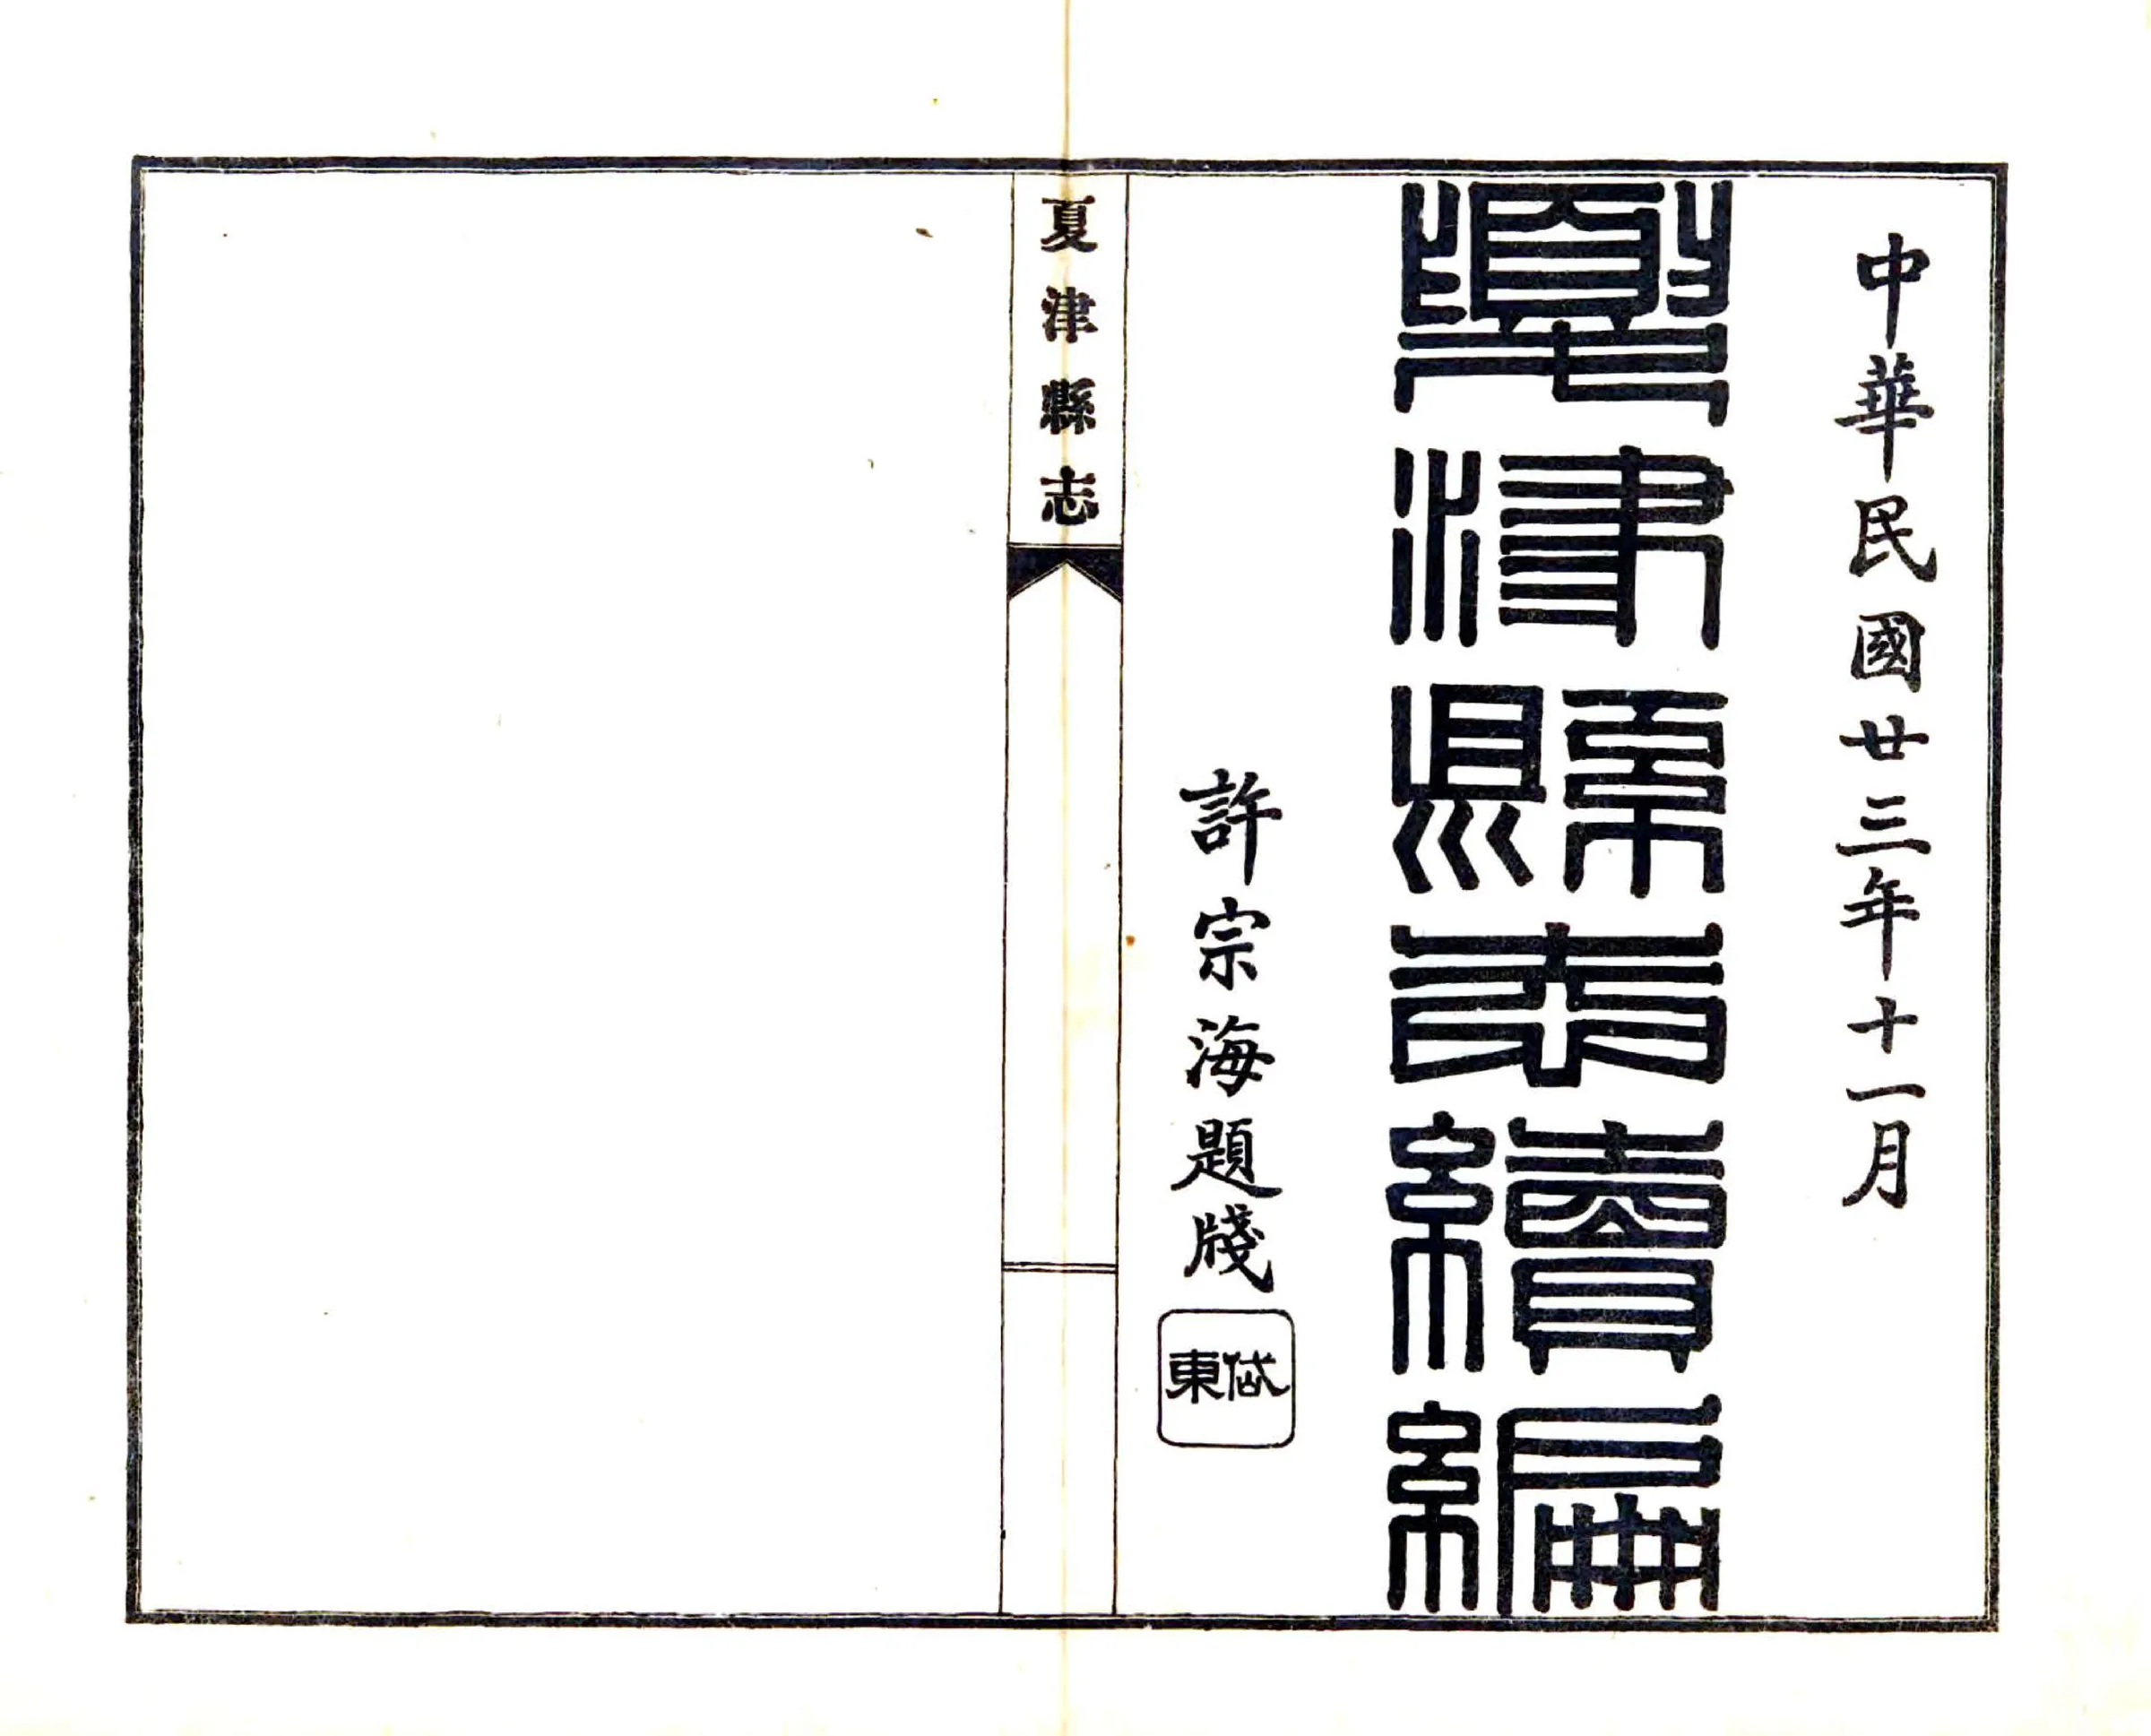 中華民國廿三年十一月
夏津縣志續編
許宗海題牋
岱東
夏津縣志